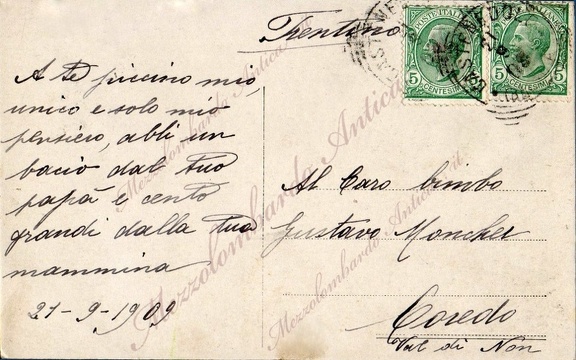 Trentino
POSTE ITALIANE
5 CENTESIMI 5
5 CENTESIMI 5
A te piccino mio,
unico e solo mio
pensiero, abbi un
bacio dal tuo
papà e cento
grandi dalla tua
mammina
21-9-1909
Al Caro bimbo
Gustavo Moncher
Coredo
Val di Non
Mezzolombardo Antica
Mezzolombardo Antica
Mezzolombardo Antica.it